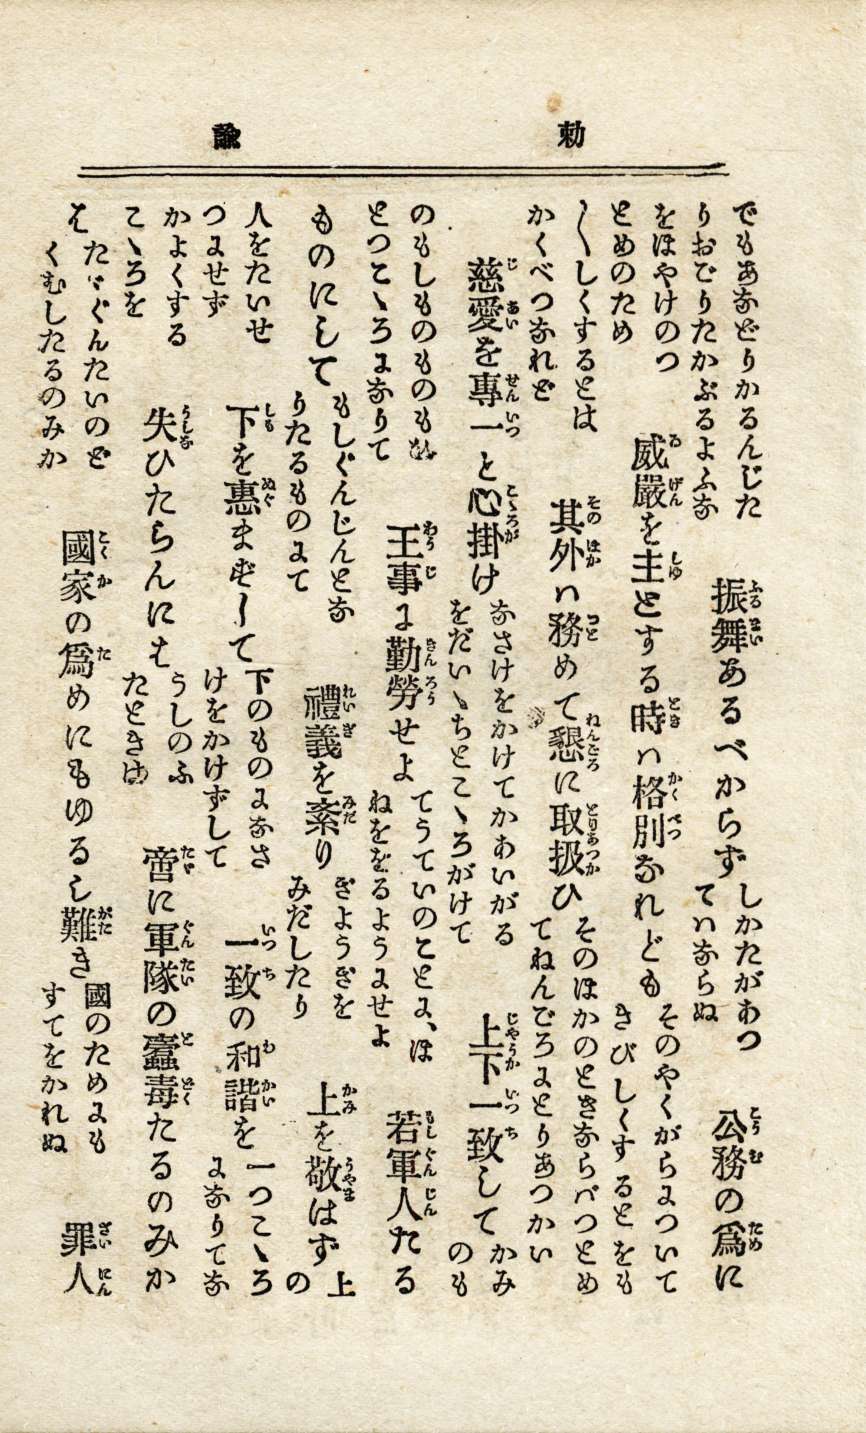 勅諭
でもあなどりかるんじた
りおごりたかぶるよふな
振舞あるべからず
しかたがあつ
てハならぬ
公務の爲に
をほやけのつ
とめのため
威嚴を主とする時ハ格別なれども
そのやくがらについて
きびしくするとをも
〱しくするとは
かくべつなれど
其外ハ務めて懇に取扱ひ
そのほかのときならバつとめ
てねんごろにとりあつかい
慈愛を專一と心掛け
なさけをかけてかあいがる
をだいゝちとこゝろがけて
上下一致して
かみ
のも
のもしものものもひ
とつこゝろになりて
王事に勤勞せよ
てうていのことに、ほ
ねををるようにせよ
若軍人たる
ものにして
もしぐんじんとな
りたるものにて
禮義を紊り
ぎようぎを
みだしたり
上を敬はず
上
の
人をたいせ
つにせず
下を惠まずして
下のものになさ
けをかけずして
一致の和諧を
一つこゝろ
になりてな
かよくする
こゝろを
失ひたらんには
うしのふ
たときは
啻に軍隊の蠹毒たるのみか
は
たゞぐんたいのど
くむしたるのみか
國家の爲めにもゆるし難き
國のためにも
すてをかれぬ
罪人